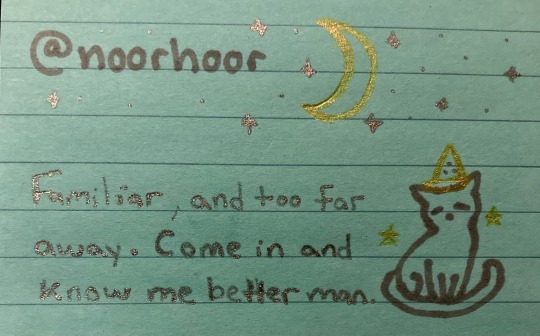 @noorhoor
Familiar, and too far
away. Come in and
know me better man.